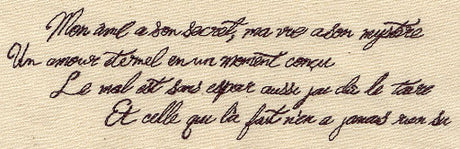 Mon ame a son secret, ma vie a son mystère
Un amour eternel en un moment conçu
Le mal est sans espoir aussi j'ai du le taire
Et celle qui l'a fait n'en a jamais rien su